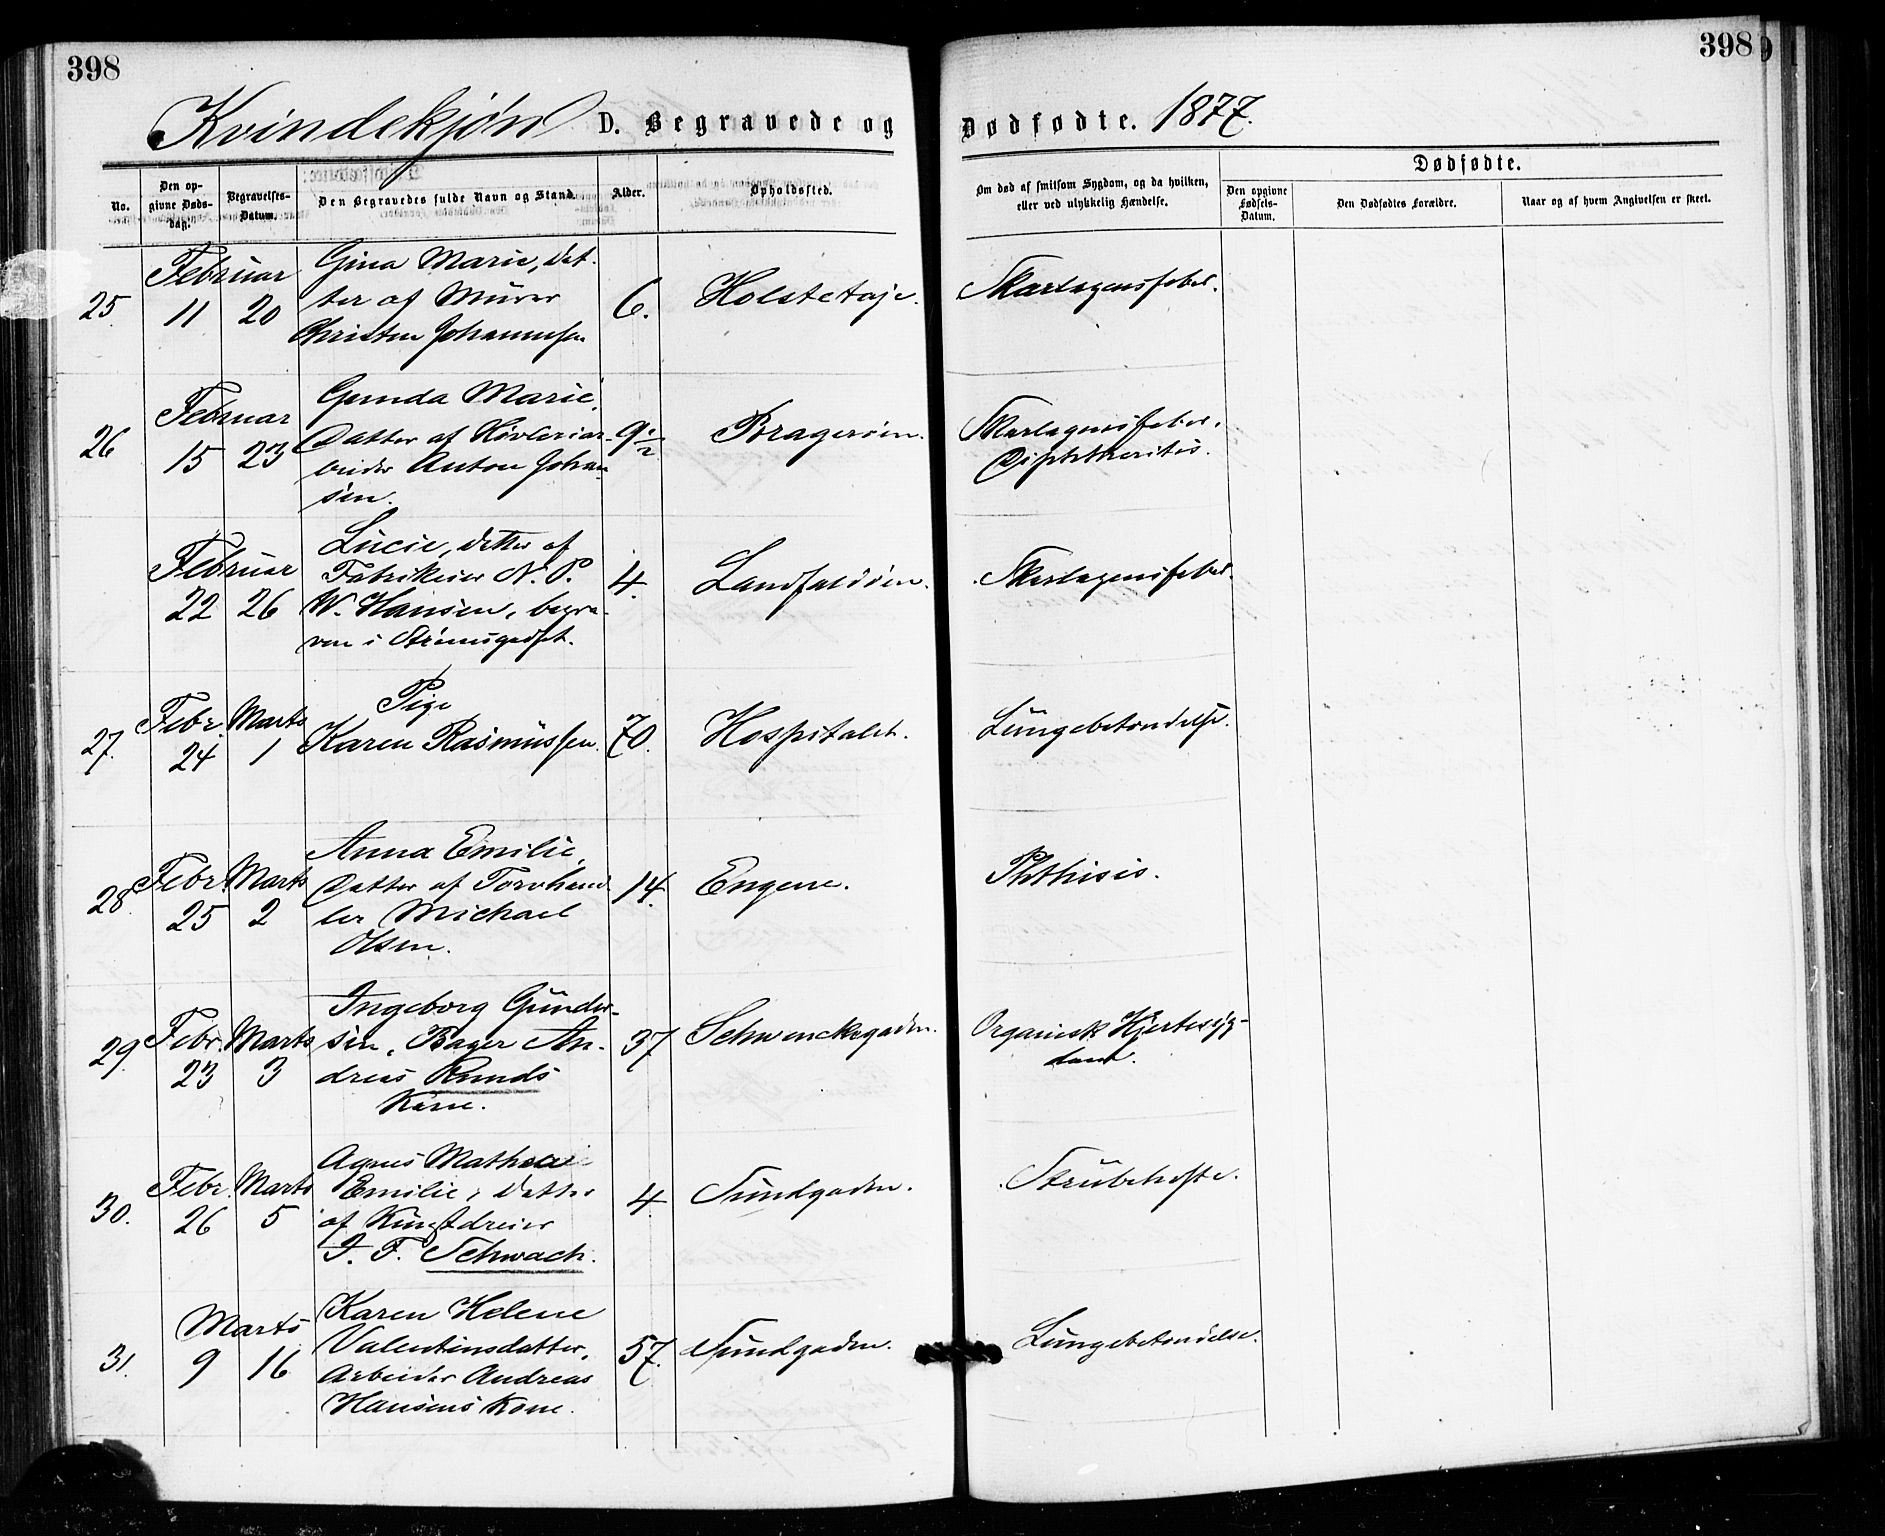 398
398
Kvindekjøn D. Begravede og Dødfødte. 1877.
No.
Den opgivne Døds-
dag.
Begravelses-
Datum.
Den Begravedes fulde Navn og Stand.
Alder.
Opholdssted.
Om død af smitsom Sygdom, og da hvilken,
eller ved ulykkelig Hændelse.
Dødfødte.
Den opgivne
Fødsels-
Datum.
Den Dødfødtes Forældre.
Naar og af hvem Angivelsen er skeet.
25. Februar 11 20
Gina Marie, Dat-
ter af Murer
Christen Johannesen
6. Holstetøje. Skarlagensfeber.
26 Februar 15 23
Gunda Marie,
Datter af Høvleriar-
beider Anton Johan-
sen.
9 1/2 Bragerøen. Skarlagensfeber.
Diphtheritis.
Februar 22 26
Lucie, Datter af
Fabrikeier N. P.
W. Hansen, begra-
ven i Strømsgodset.
4. Landfaldøen. Skarlagensfeber.
27. Febr. 24 Marts 1
Pige
Karen Rasmussen.
70. Hospitalet. Lungebetændelse.
28. Febr. 25 Marts 2
Anna Emilie,
Datter af Torvhand-
ler Michael
Olsen.
14. Engene. Phthisis.
29. Febr. 23 Marts 3
Ingeborg Gunder-
sen, Bager An-
dreas Runds
Kone.
37 Schwenckegaden. Organisk Hjertesyg-
dom.
30. Febr. 26 Marts 5
Agnes Mathea
Emilie, Datter
af Kunstdreier
J. F. Schwach.
4. Tundgaden. Strubehoste.
31. Marts 9 16
Karen Helene
Valentinsdatter,
Arbeider Andreas
Hansens Kone.
57. Tundgaden. Lungebetændelse.